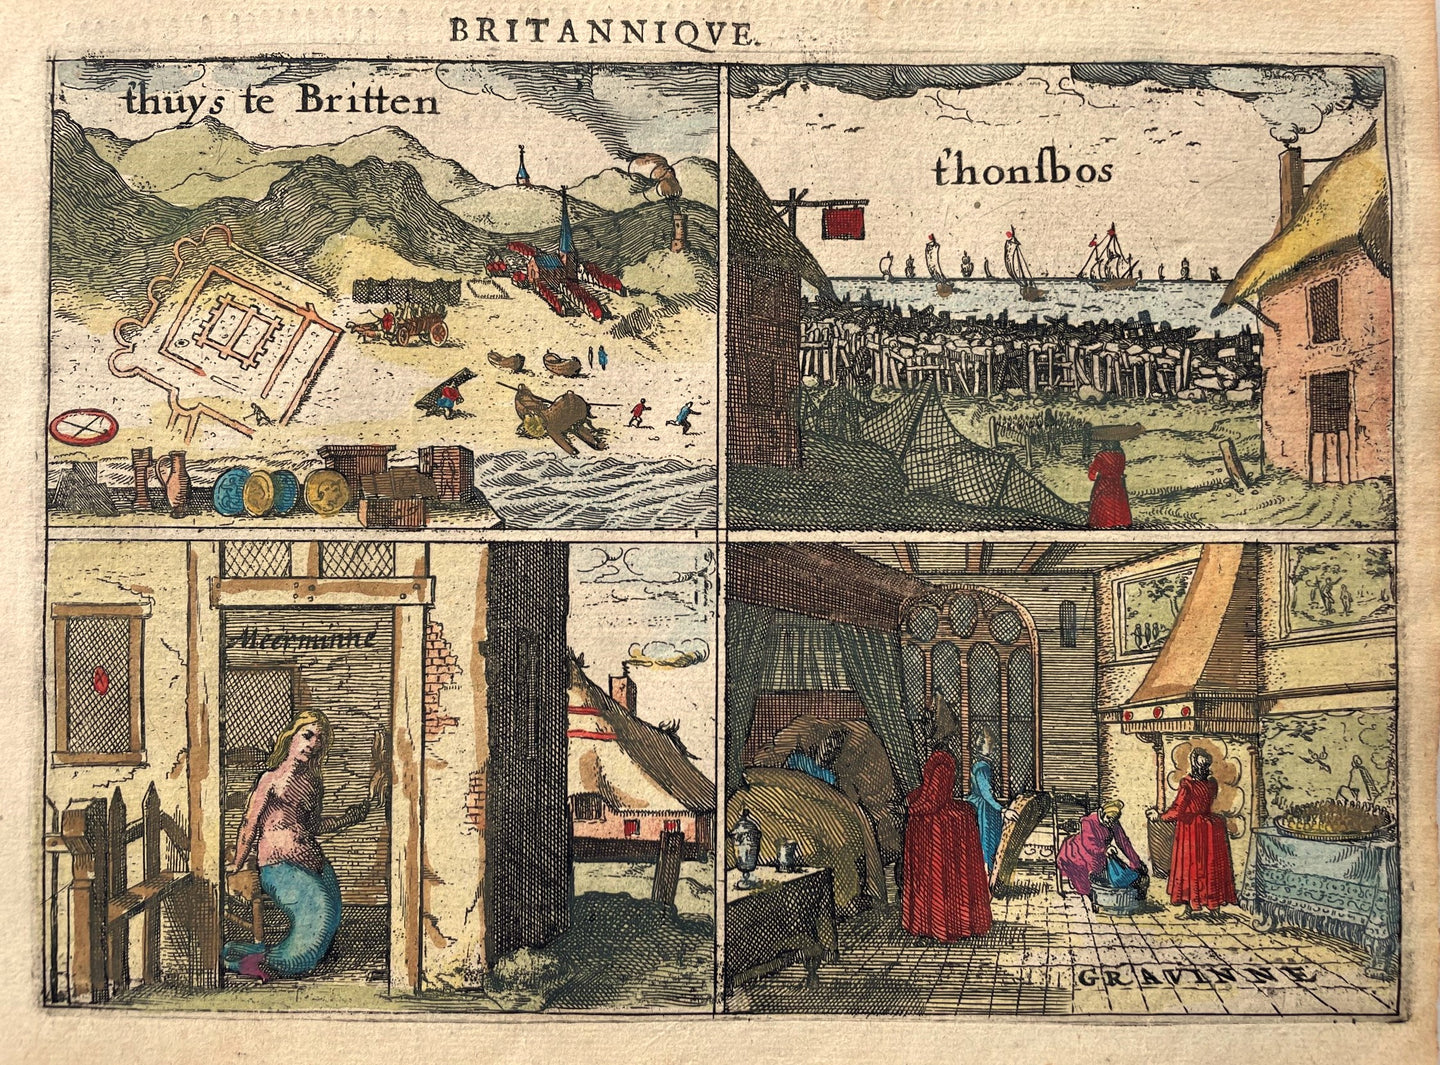 BRITANNIQVE.
thuys te Britten
t'honſbos
Meerminne
GRAVINNE